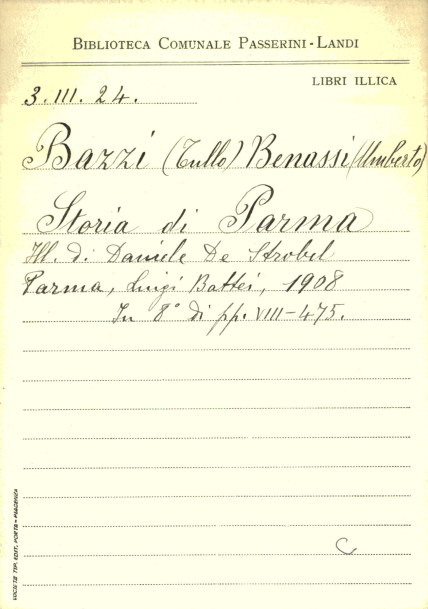 BIBLIOTECA COMUNALE PASSERINI-LANDI
LIBRI ILLICA
3. III. 24.
Bazzi (Tullo) Benassi (Umberto)
Storia di Parma
Ill. di Daniele De Strobel
Parma, Luigi Battei, 1908
In 8° di pp. VIII-475.
C
SOCIETÀ TIP. EDIT. PORTA - PIACENZA